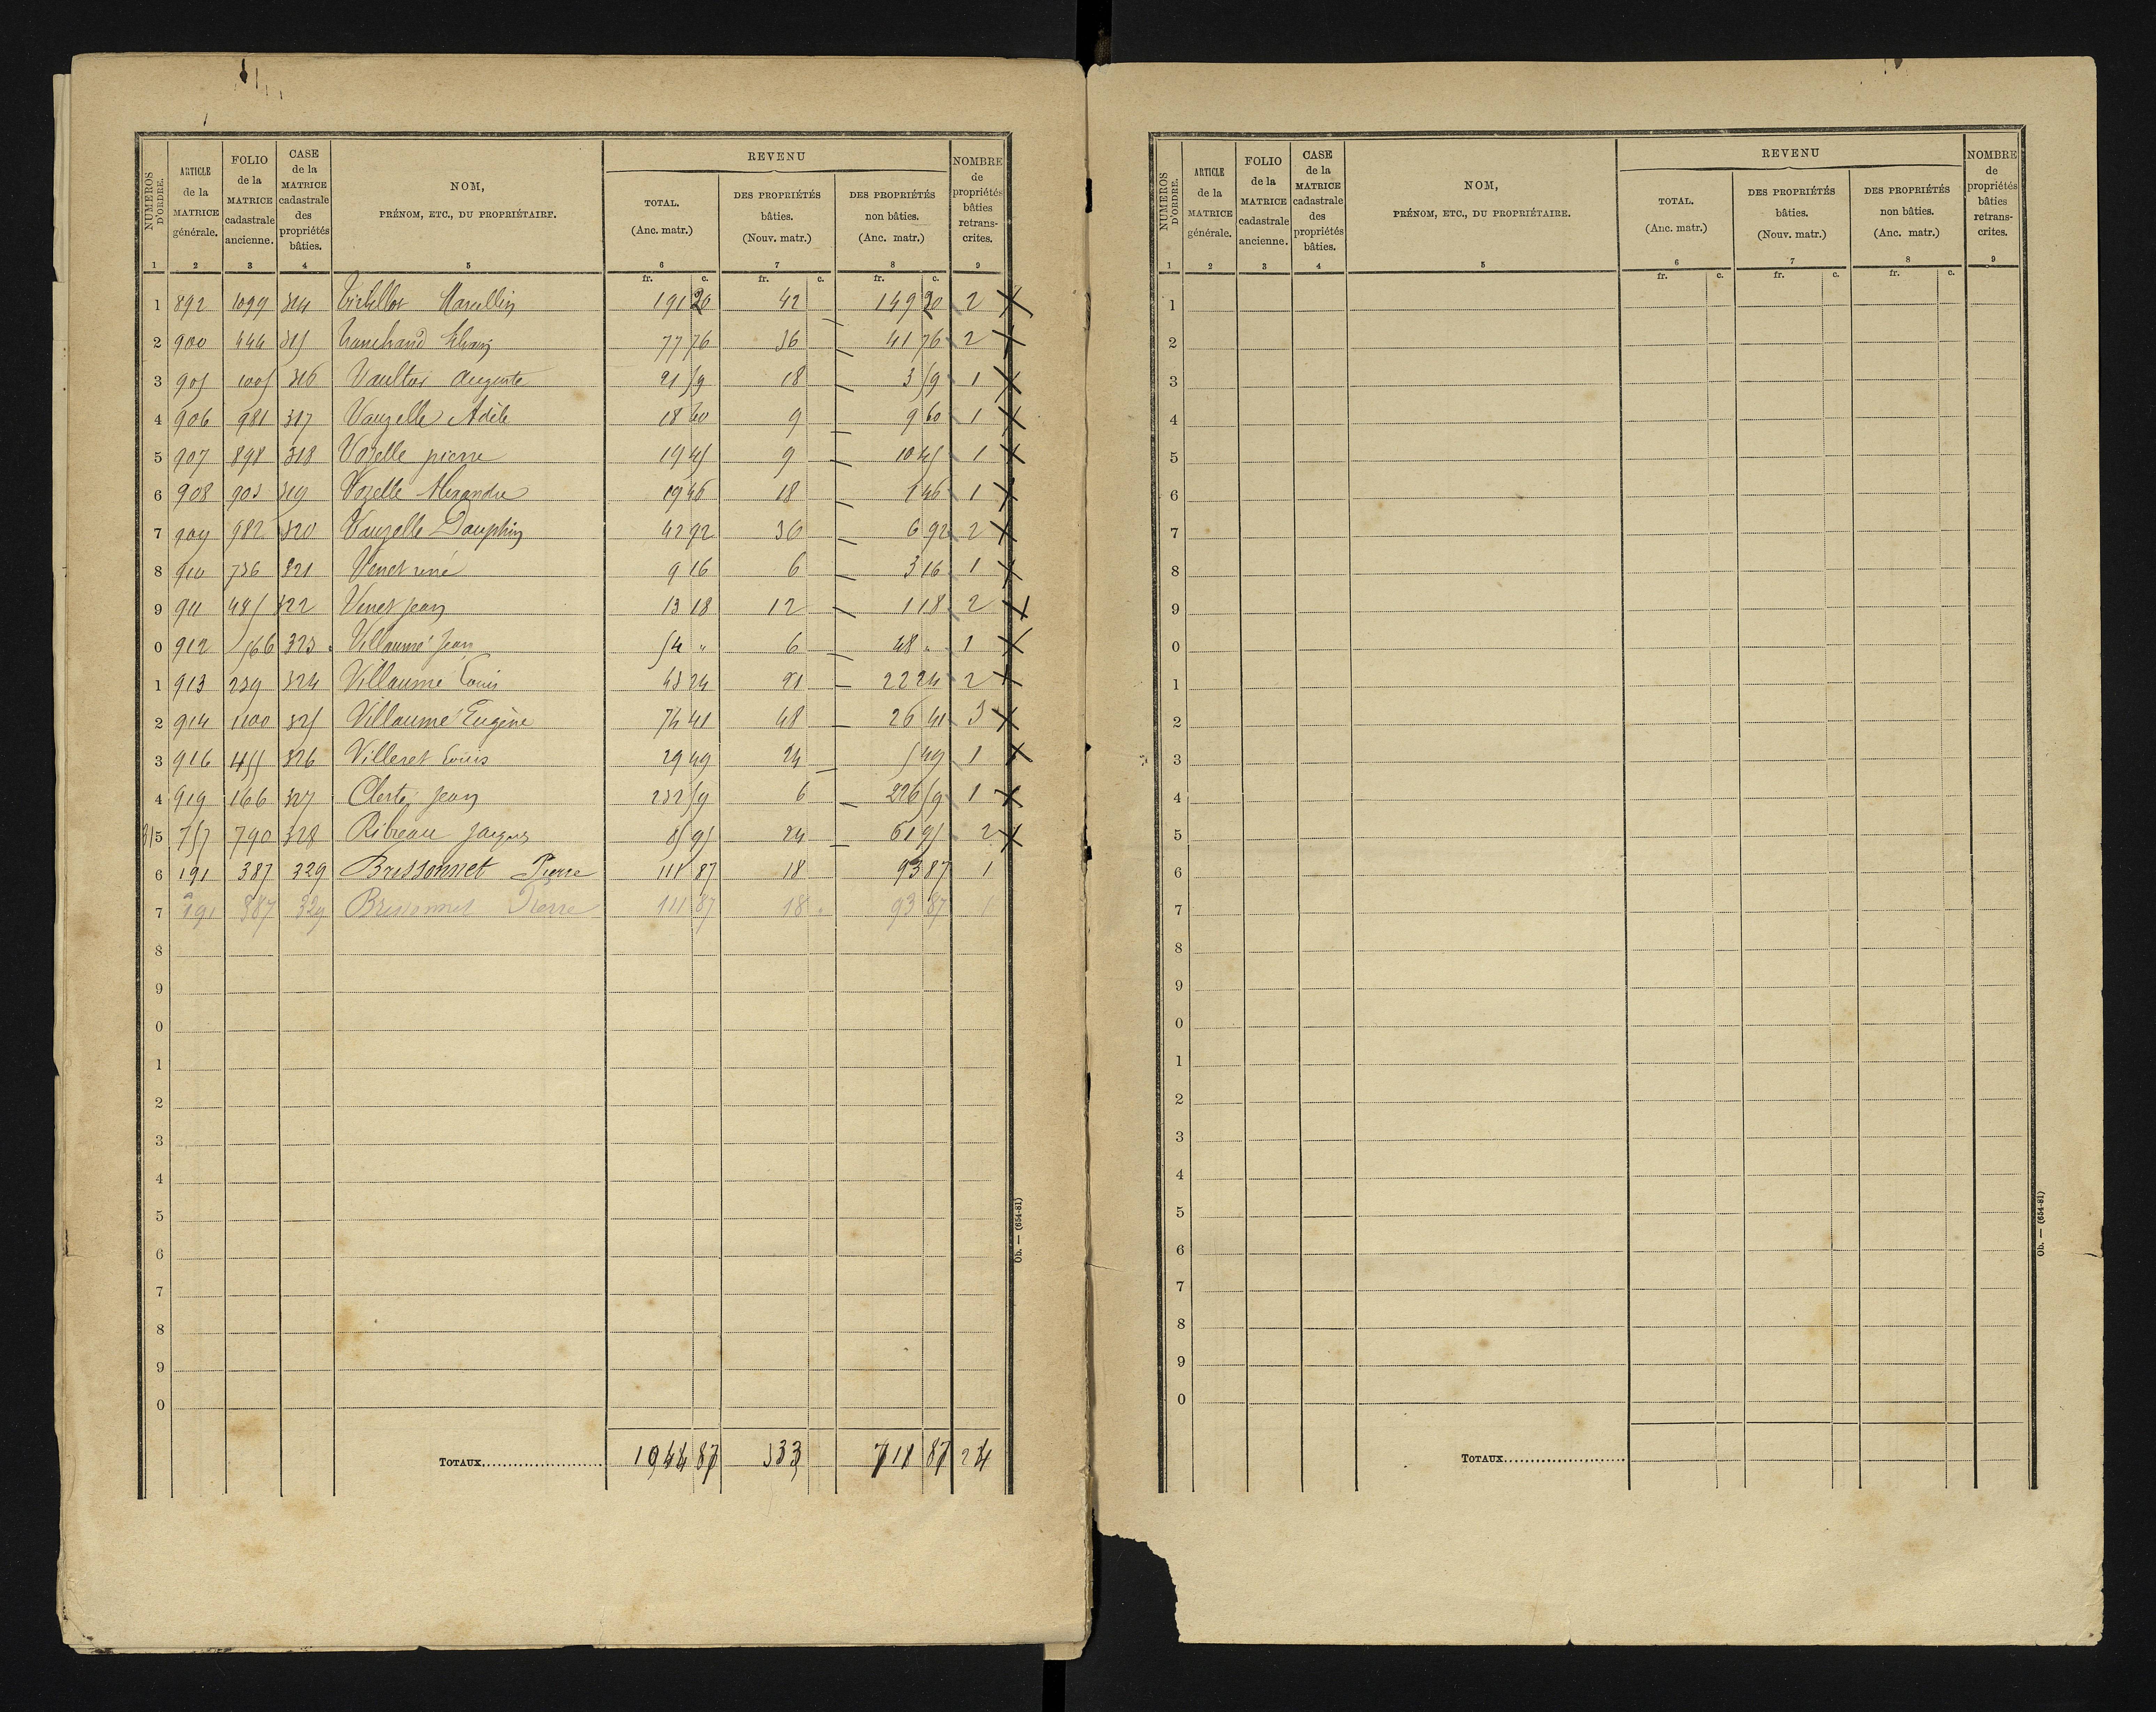 NUMEROS D'ORDRE. ARTICLE de la MATRICE générale. FOLIO de la MATRICE cadastrale ancienne. CASE de la MATRICE cadastrale des propriétés bâties. NOM, PRÉNOM, ETC., DU PROPRIÉTAIRE. REVENU TOTAL. (Anc. matr.) DES PROPRIÉTÉS bâties. (Nouv. matr.) DES PROPRIÉTÉS non bâties. (Anc. matr.) NOMBRE de propriétés bâties retrans-crites.
1 2 3 4 5 6 7 8 9
fr. c. fr. c. fr. c.
1 892 1099 314 Marcellin 191 20 42 149 20 2 X
2 900 444 315 77 76 36 41 76 2 X
3 905 1005 316 Auguste 21 59 18 3 59 1 X
4 906 981 317 Vauzelle Adèle 18 60 9 9 60 1 X
5 907 898 318 Vozelle pierre 19 45 9 10 45 1 X
6 908 903 319 Vozelle Alexandre 19 46 18 1 46 1 X
7 909 982 320 Vauzelle Dauphin 42 92 36 6 92 2 X
8 910 736 321 Venet réné 9 16 6 3 16 1 X
9 911 485 322 Venet Jean 13 18 12 1 18 2 X
0 912 566 323 Villaumé Jean 54 " 6 48 " 1 X
1 913 239 324 Villaumé Louis 43 24 21 22 24 2 X
2 914 1100 325 Villaumé Eugène 74 41 48 26 41 3 X
3 916 455 326 Villeret Louis 29 49 24 5 49 1 X
4 919 166 327 Clerté Jean 232 59 6 226 59 1 X
315 757 790 328 Ribreau Jacques 85 95 24 61 95 2 X
6 191 387 329 Brissonnet Pierre 111 87 18 93 87 1
7 191 387 329 Brissonnet Pierre 111 87 18 93 87 1
8
9
0
1
2
3
4
5
6
7
8
9
0
TOTAUX 1044 87 333 711 87 24
Ob. — (654-81)
NUMEROS D'ORDRE. ARTICLE de la MATRICE générale. FOLIO de la MATRICE cadastrale ancienne. CASE de la MATRICE cadastrale des propriétés bâties. NOM, PRÉNOM, ETC., DU PROPRIÉTAIRE. REVENU TOTAL. (Anc. matr.) DES PROPRIÉTÉS bâties. (Nouv. matr.) DES PROPRIÉTÉS non bâties. (Anc. matr.) NOMBRE de propriétés bâties retrans-crites.
1 2 3 4 5 6 7 8 9
fr. c. fr. c. fr. c.
1
2
3
4
5
6
7
8
9
0
1
2
3
4
5
6
7
8
9
0
1
2
3
4
5
6
7
8
9
0
TOTAUX
Ob. — (654-81)